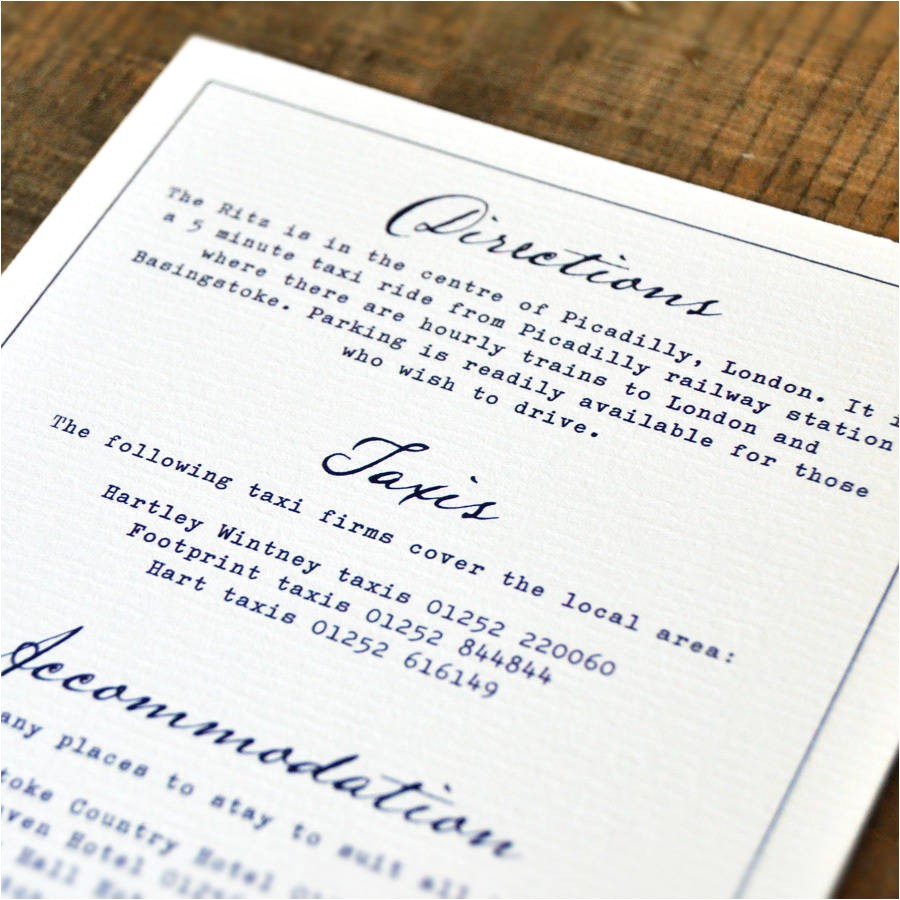 Directions
The Ritz is in the centre of Picadilly, London. It
a 5 minute taxi ride from Picadilly railway station
where there are hourly trains to London and
Basingstoke. Parking is readily available for those
who wish to drive.
Taxis
The following taxi firms cover the local area:
Hartley Wintney taxis 01252 220060
Footprint taxis 01252 844844
Hart taxis 01252 616149
Accommodation
any places to stay to suit all
toke Country Hotel
ven Hotel
Hall